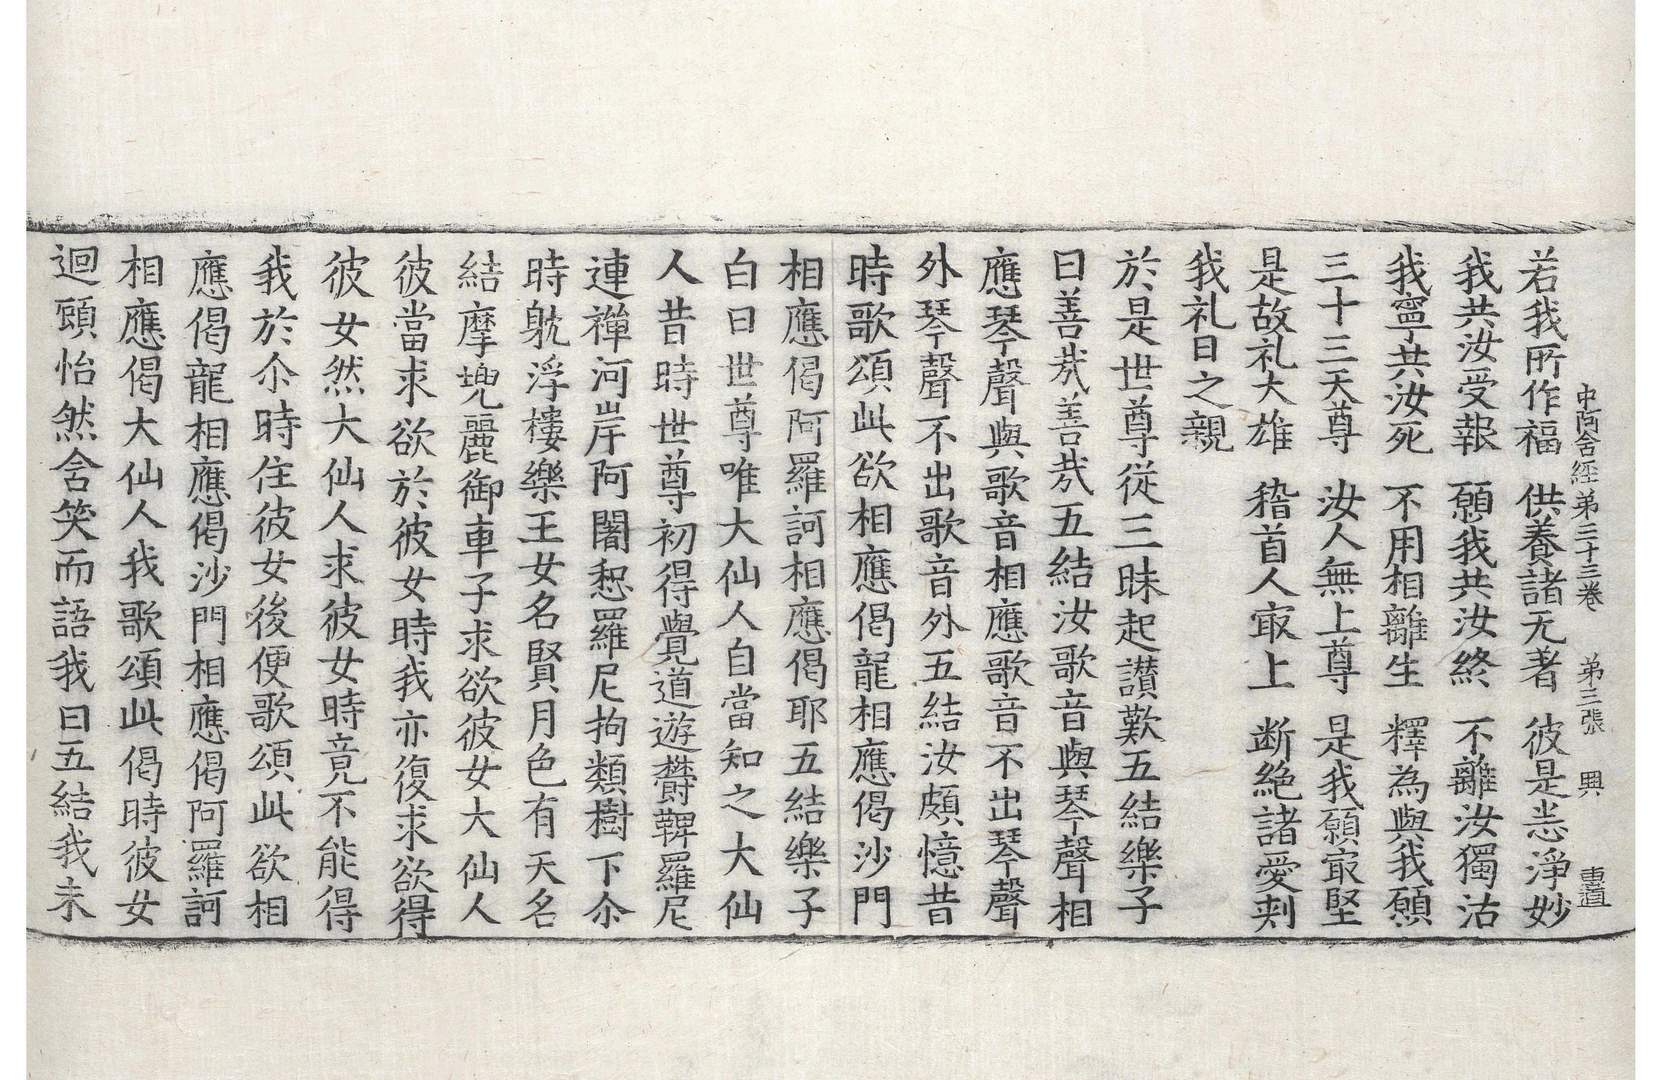 中阿含經第三十三卷　第三張　興
若我所作福　供養諸无著　彼是悉淨妙
我共汝受報　願我共汝終　不離汝獨活
我寧共汝死　不用相離生　釋為與我願
三十三天尊　汝人無上尊　是我願㝡堅
是故礼大雄　稽首人㝡上　断絶諸愛刾
我礼日之親
於是世尊從三昧起讃歎五結樂子
曰善㢤善㢤五結汝歌音與琴聲相
應琴聲與歌音相應歌音不出琴聲
外琴聲不出歌音外五結汝頗憶昔
時歌頌此欲相應偈龍相應偈沙門
相應偈阿羅訶相應偈耶五結樂子
白曰世尊唯大仙人自當知之大仙
人昔時世尊初得覺道遊欝鞞羅尼
連禪河岸阿闍惒羅尼拘類樹下尒
時躭浮樓樂王女名賢月色有天名
結摩兠麗御車子求欲彼女大仙人
彼當求欲於彼女時我亦復求欲得
彼女然大仙人求彼女時竟不能得
我於尒時住彼女後便歌頌此欲相
應偈龍相應偈沙門相應偈阿羅訶
相應偈大仙人我歌頌此偈時彼女
迴顧怡然含笑而語我曰五結我未